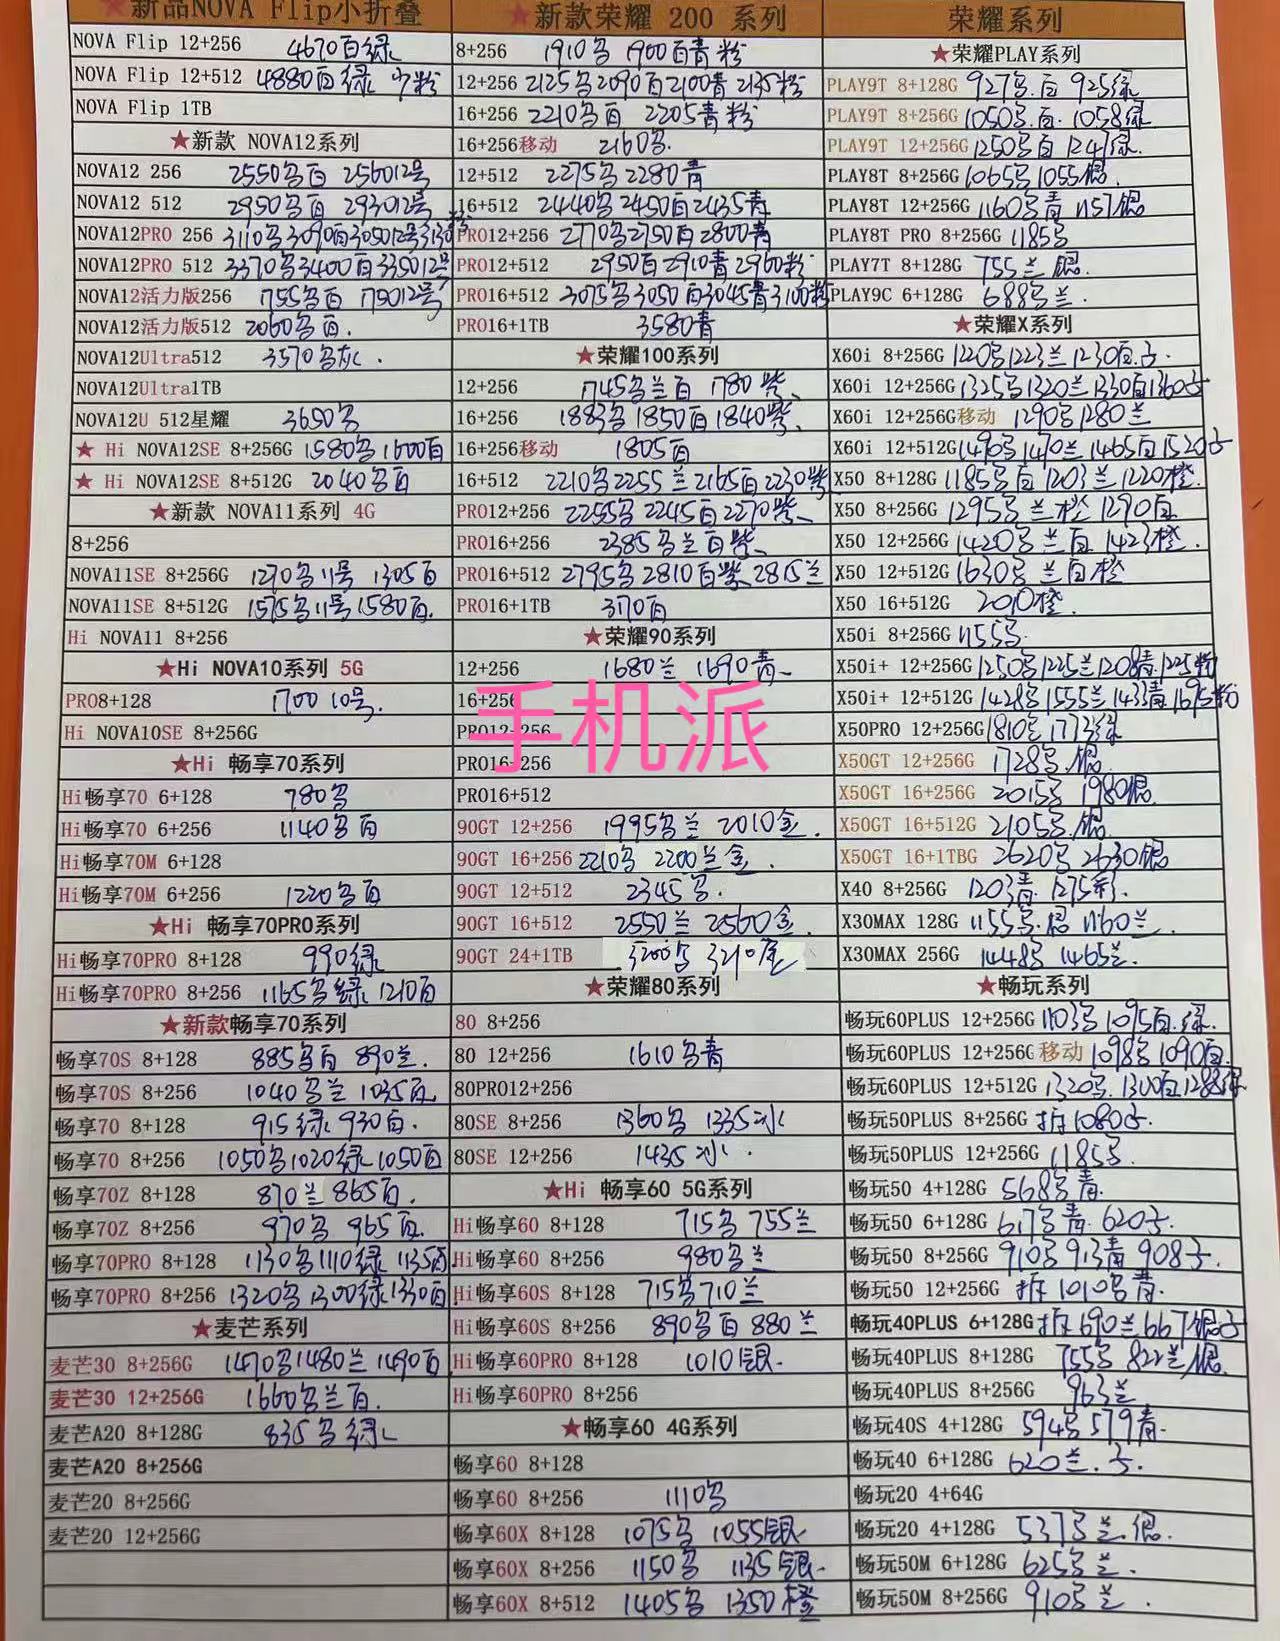 新品NOVA Flip小折叠
NOVA Flip 12+256 4670百绿
NOVA Flip 12+512 4880百绿 少粉
NOVA Flip 1TB
★新款 NOVA12系列
NOVA12 256 2550马百 256012号
NOVA12 512 2950马百 293012号
NOVA12PRO 256 3110马3090百305012号3130粉
NOVA12PRO 512 3370马3400百335012号
NOVA12活力版256 1755马百 175012号
NOVA12活力版512 2060马百.
NOVA12Ultra512 3570马灰.
NOVA12Ultra1TB
NOVA12U 512星耀 3650马
★ Hi NOVA12SE 8+256G 1580马1600百
★ Hi NOVA12SE 8+512G 2040马百
★新款 NOVA11系列 4G
8+256
NOVA11SE 8+256G 1270马11号 1305百
NOVA11SE 8+512G 1575马11号1580百.
Hi NOVA11 8+256
★Hi NOVA10系列 5G
PRO8+128 1700 10号.
Hi NOVA10SE 8+256G
★Hi 畅享70系列
Hi畅享70 6+128 780马
Hi畅享70 6+256 1140马百
Hi畅享70M 6+128
Hi畅享70M 6+256 1220马百
★Hi 畅享70PRO系列
Hi畅享70PRO 8+128 990绿
Hi畅享70PRO 8+256 1165马绿 1210百
★新款畅享70系列
畅享70S 8+128 885马百 890兰.
畅享70S 8+256 1040马兰 1035百
畅享70 8+128 915绿930百.
畅享70 8+256 1050马1020绿1050百
畅享70Z 8+128 870兰865百.
畅享70Z 8+256 970马 965百.
畅享70PRO 8+128 1130马1110绿 1135百
畅享70PRO 8+256 1320马1300绿1330百
★麦芒系列
麦芒30 8+256G 1470马1480兰1490百
麦芒30 12+256G 1660马兰百.
麦芒A20 8+128G 835马绿
麦芒A20 8+256G
麦芒20 8+256G
麦芒20 12+256G
★新款荣耀 200 系列
8+256 1910马 1900百青粉
12+256 2125马2090百2100青 2135粉
16+256 2210马百 2205青粉
16+256移动 2160马.
12+512 2275马2280青
16+512 2440马2450百2435青
PRO12+256 2770马2750百2800青
PRO12+512 2950百2910青2960粉
PRO16+512 3075马3050百3045青3100粉
PRO16+1TB 3580青
★荣耀100系列
12+256 1745马兰百 1780紫
16+256 1883马1850百1840紫
16+256移动 1805百
16+512 2210马2255兰2165百2230紫
PRO12+256 2255马2245百2270紫
PRO16+256 2385马兰百紫
PRO16+512 2795马2810百紫2815兰
PRO16+1TB 3170百
★荣耀90系列
12+256 1680兰 1690青
16+256
PRO12+256
PRO16+256
PRO16+512
手机派
90GT 12+256 1995马兰 2010金.
90GT 16+256 2210马 2200兰金.
90GT 12+512 2345马.
90GT 16+512 2550兰2560金.
90GT 24+1TB 3200马3210金
★荣耀80系列
80 8+256
80 12+256 1610马青
80PRO12+256
80SE 8+256 1360马 1335冰
80SE 12+256 1435冰.
★Hi 畅享60 5G系列
Hi畅享60 8+128 715马755兰
Hi畅享60 8+256 980马兰
Hi畅享60S 8+128 715马710兰
Hi畅享60S 8+256 890马百880兰
Hi畅享60PRO 8+128 1010银.
Hi畅享60PRO 8+256
★畅享60 4G系列
畅享60 8+128
畅享60 8+256 1110马
畅享60X 8+128 1075马 1055银
畅享60X 8+256 1150马 1135银.
畅享60X 8+512 1405马 1350橙
荣耀系列
★荣耀PLAY系列
PLAY9T 8+128G 927马.百 925绿
PLAY9T 8+256G 1050马.百. 1058绿
PLAY9T 12+256G 1250马百1247绿.
PLAY8T 8+256G 1065马1055银.
PLAY8T 12+256G 1160马青1157银
PLAY8T PRO 8+256G 1185马
PLAY7T 8+128G 755兰银.
PLAY9C 6+128G 688马兰.
★荣耀X系列
X60i 8+256G 1220马1223兰1230百子.
X60i 12+256G 1325马1320兰1330百1360子
X60i 12+256G移动 1290马1280兰
X60i 12+512G 1490马1470兰1465百1520子
X50 8+128G 1185马百1203兰1220橙.
X50 8+256G 1295马兰橙1290百
X50 12+256G 1420马兰百1423橙.
X50 12+512G 1630马兰百橙
X50 16+512G 2010橙.
X50i 8+256G 1155马.
X50i+ 12+256G 1250马1225兰1208青.1225粉
X50i+ 12+512G 1428马1555兰1433青1695粉
X50PRO 12+256G 1810马1773绿
X50GT 12+256G 1728马.银
X50GT 16+256G 2015马 1980银
X50GT 16+512G 2105马.银
X50GT 16+1TBG 2620马2630银
X40 8+256G 1203青.1275彩.
X30MAX 128G 1155马.银1160兰.
X30MAX 256G 1448马1465兰.
★畅玩系列
畅玩60PLUS 12+256G 1103马1095百.绿.
畅玩60PLUS 12+256G移动 1098马1090百.
畅玩60PLUS 12+512G 1320马.1300百1288绿
畅玩50PLUS 8+256G 拆1080子.
畅玩50PLUS 12+256G 1185马.
畅玩50 4+128G 568马青.
畅玩50 6+128G 617马青.620子.
畅玩50 8+256G 910马913青908子.
畅玩50 12+256G 拆1010马青.
畅玩40PLUS 6+128G 拆690兰667银子
畅玩40PLUS 8+128G 755马822兰.银.
畅玩40PLUS 8+256G 963兰
畅玩40S 4+128G 594马579青.
畅玩40 6+128G 620兰.子.
畅玩20 4+64G
畅玩20 4+128G 537马兰.银.
畅玩50M 6+128G 625马兰.
畅玩50M 8+256G 910马兰.